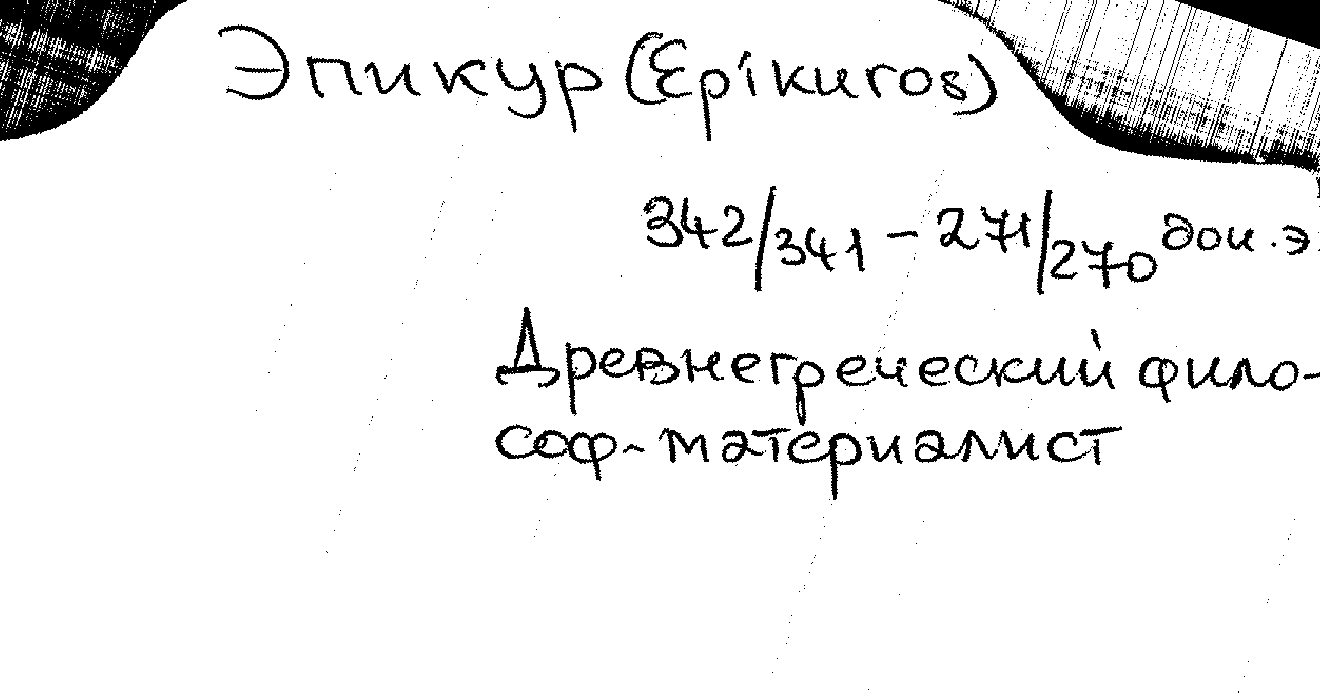 Эпикур (Epíkuros)
342/341 - 271/270 до н.э.
Древнегреческий фило-
соф-материалист